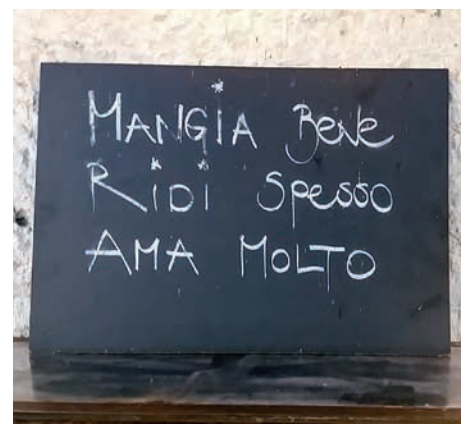 MANGIA BENE
RIDI SPESSO
AMA MOLTO